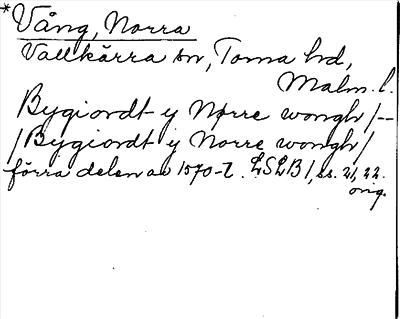 *Vång, Norra
Vallkärra sn, Torna hd,
Malm. l.
Bygiordt y Nørre wongh /--
/ Bygiordt y Norre wongh /
förra delen av 1570-t. LSLB 1, ss. 21, 22.
orig.